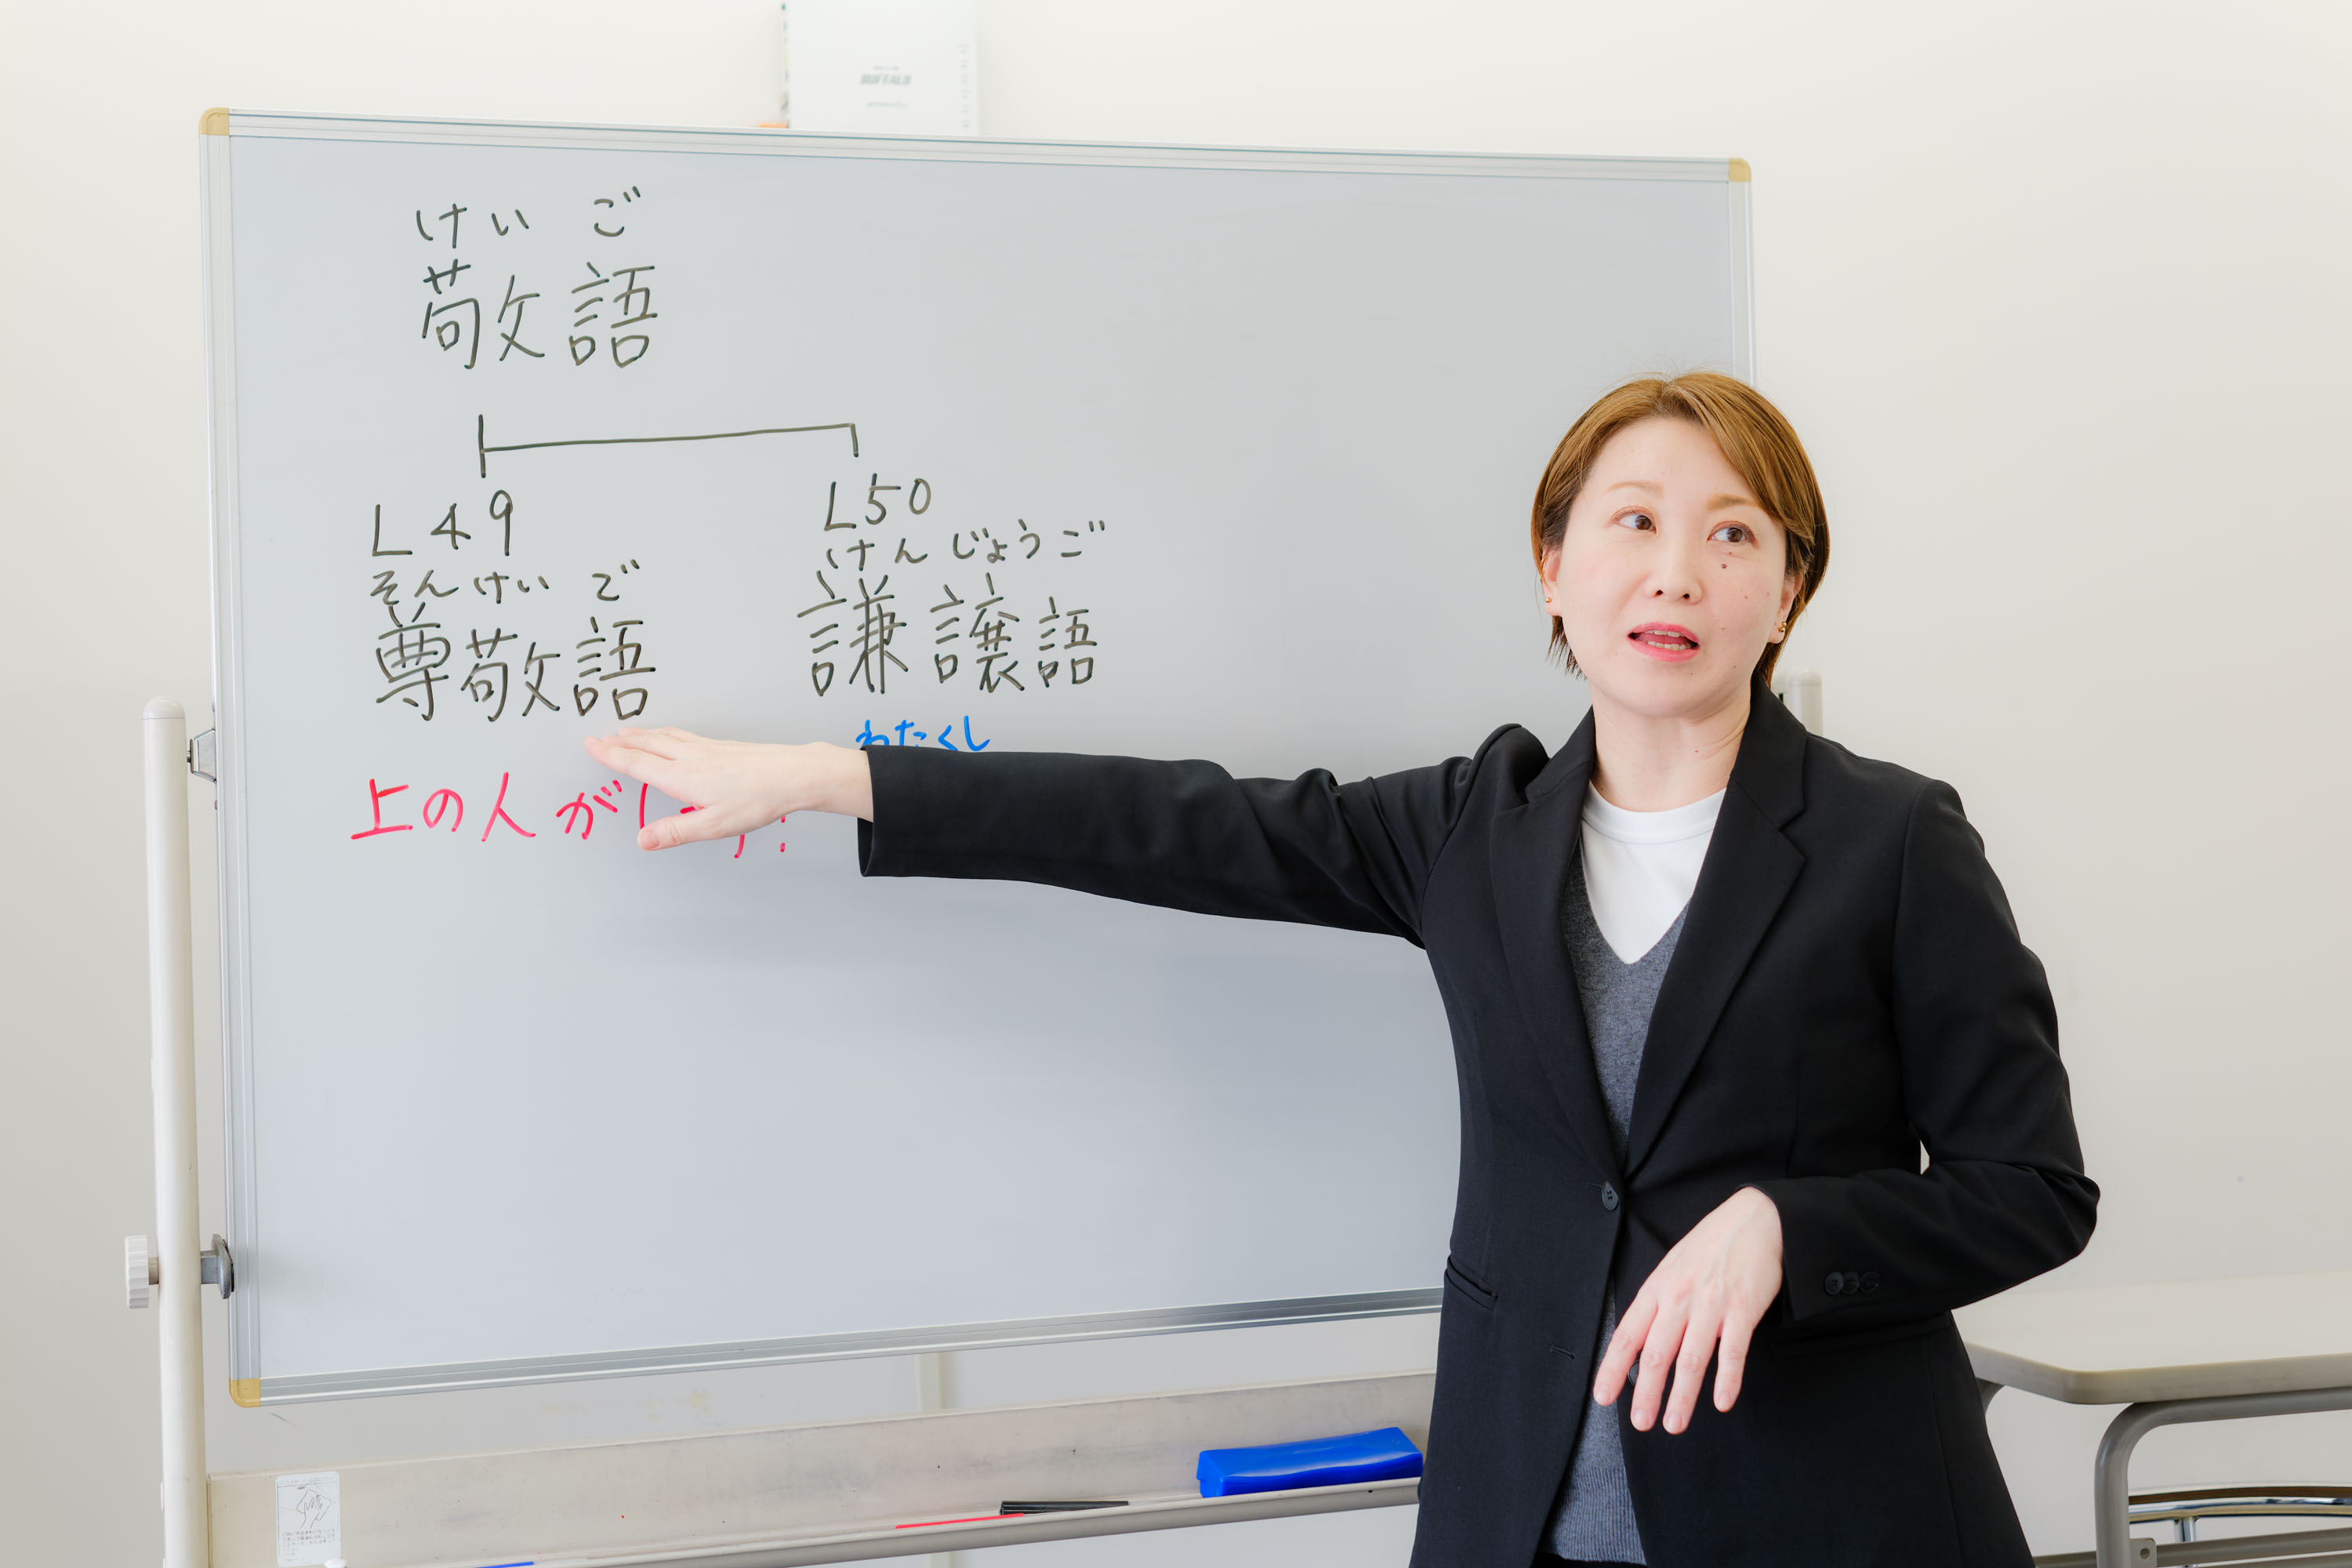 BUFFALO
けい ご
敬語
L49
そんけい ご
尊敬語
上の人が
L50
けんじょうご
謙譲語
わたくし